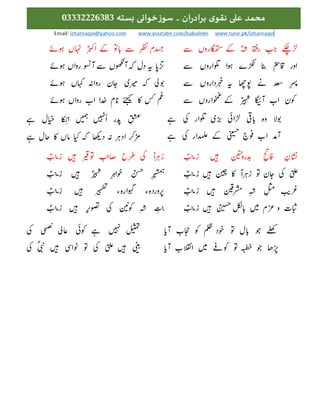 محمد علی نقوی برادران ۔ سوزخوانی بستہ 03332226383
Email: izharnaqvi@yahoo.com www.youtube.com/babalnlm www.tune.pk/izharnaqvi
بچھڑے جب رفقا شہؑ کے ستمگاروں سے جسدم نظر سے بانوؑ کے اکبرؑ نہاں ہوئے
اور قاسمؑ بنا ٹکڑے ہوا تلواروں سے تڑپا یہ دل کہ آنکھوں سے آنسو رواں ہوئے
پسرِ سعد نے پوچھا یہ خبرداروں سے بولی کہ میری جان روانہ کہاں ہوئے
کون اب آئیگا شبیرؑ کے غمخواروں سے کس غم کا بیٹے نام خدا اب رواں ہوئے
بولا وہ باقی لڑائی بڑی تلوار کی ہے عشقِ پدر انہیں ہمیں انکا خیال ہے
آمد اب فوج حسینی کے علمدار کی ہے دیکھا نہ ادہر کہ کیا ماں کا حال ہے
نشانِ فاتحِ بدروحنین ہیں زینبؑ زہراؑ کی طرح صاحبِ توقیر ہیں زینبؑ
علیؑ کی جان تو زہراؑ کا چین ہیں زینبؑ ہمشیرِ حسنؑ خواہرِ شبیرؑ ہیں زینبؑ
غریب مثلِ شہِ مشرقین ہیں زینبؑ پروردہء گہوارہء تطہیر ہیں زینبؑ
ثبات و عزم میں بالکل حسینؑ ہیں زینبؑ شہِ کونین کی تصویر ہیں زینبؑ
کھلے جو بال تو خود ظلم کو حجاب آیا تمثیل نہیں ہے کوئی عالی نصبی کی
پڑھا جو خطبہ تو کوفے میں انقلاب آیا بیٹی ہیں علیؑ کی تو نواسی ہیں نبیؐ کی